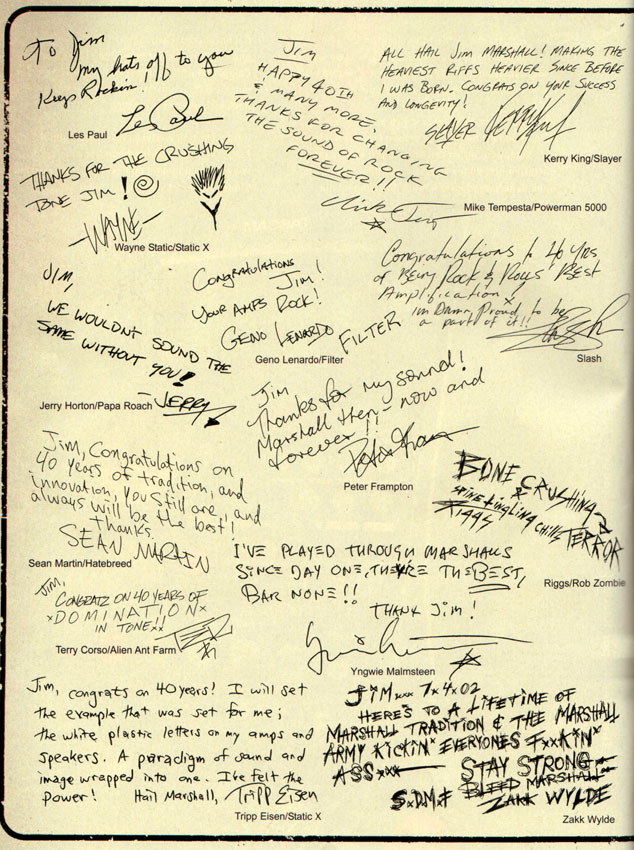 To Jim
my hats off to you
Keep Rockin!
Les Paul
Les Paul
JIM
HAPPY 40TH
& MANY MORE.
THANKS FOR CHANGING
THE SOUND OF ROCK
FOREVER!!
Mike Tempesta/Powerman 5000
ALL HAIL Jim MARSHALL! MAKING THE
HEAVIEST RIFFS HEAVIER SINCE BEFORE
I WAS BORN. CONGRATS ON YOUR SUCCESS
AND LONGEVITY!
SLAYER Kerry King
Kerry King/Slayer
THANKS FOR THE CRUSHING
TONE JIM!
-WAYNE-
Wayne Static/Static X
Congratulations to 40 YRS
of Being Rock & Rolls' Best
Amplification
im Damn Proud to be
a part of it!!
Slash
Slash
JIM,
WE WOULDNT SOUND THE
SAME WITHOUT YOU!
JERRY
Jerry Horton/Papa Roach
Congratulations
Jim!
YOUR AMPS ROCK!
GENO LENARDO
FILTER
Geno Lenardo/Filter
JIM
Thanks for my sound!
Marshall then - now and
forever!!
Peter Frampton
Jim, Congratulations on
40 years of tradition, and
innovation, you still are, and
always will be the best!
Thanks,
SEAN MARTIN
Sean Martin/Hatebreed
BONE CRUSHING
&
spine tingling chills
TERROR
Riggs/Rob Zombie
I'VE PLAYED THROUGH MARSHALLS
SINCE DAY ONE, THEY'RE THE BEST,
BAR NONE!!
THANK Jim!
Yngwie Malmsteen
Jim,
CONGRATZ ON 40 YEARS OF
xDOMINATIONx
IN TONE!!
Terry Corso/Alien Ant Farm
Jim, congrats on 40 years! I will set
the example that was set for me;
the white plastic letters on my amps and
speakers. A paradigm of sound and
image wrapped into one. I've felt the
power! Hail Marshall, Tripp Eisen
Tripp Eisen/Static X
JiM xxx 7x4x02
HERE'S TO A LIFETIME OF
MARSHALL TRADITION & THE MARSHALL
ARMY KICKIN' EVERYONES FxxKIN'
ASS xxx
STAY STRONG
BLEED MARSHALL
SxDMF ZAKK WYLDE
Zakk Wylde